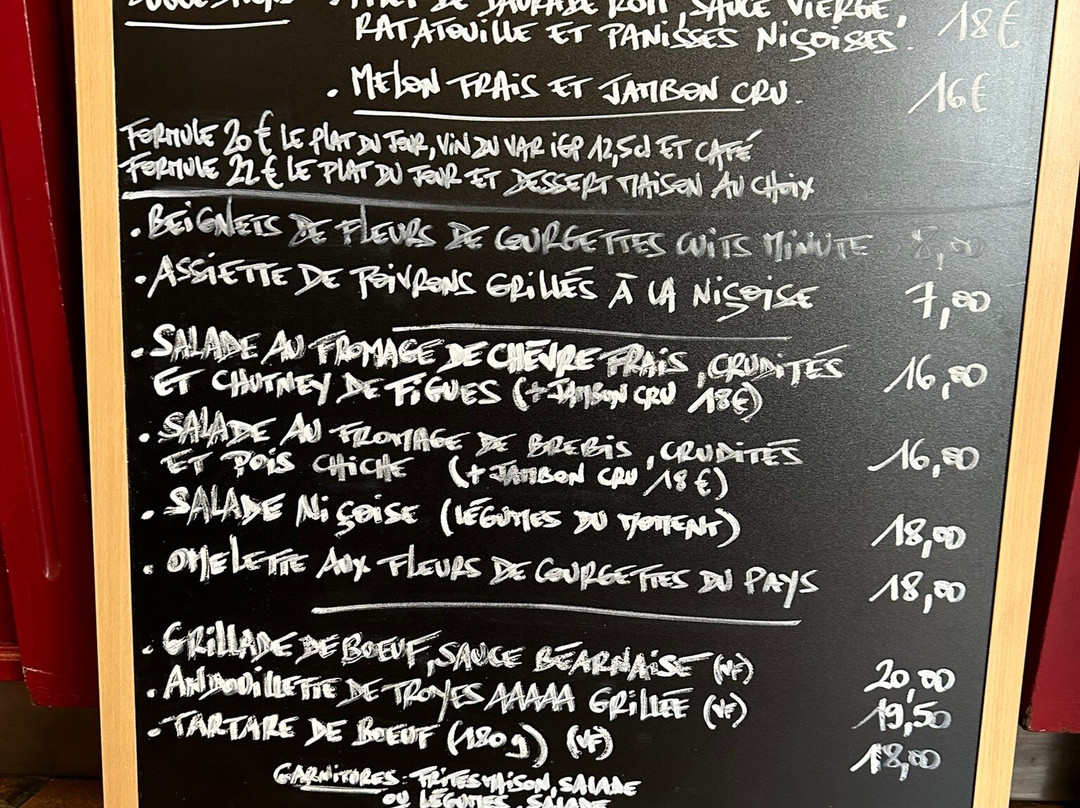 SUGGESTIONS . FILET DE DAURADE ROTI, SAUCE VIERGE,
RATATOUILLE ET PANISSES NIÇOISES. 18€
. MELON FRAIS ET JAMBON CRU. 16€
FORMULE 20€ LE PLAT DU JOUR, VIN DU VAR iGP 12,5cl ET CAFÉ
FORMULE 22€ LE PLAT DU JOUR ET DESSERT MAISON AU CHOIX
. BEIGNETS DE FLEURS DE COURGETTES CUITS MINUTE 8,00
. ASSIETTE DE POIVRONS GRILLÉS À LA NIÇOISE 7,00
. SALADE AU FROMAGE DE CHÈVRE FRAIS, CRUDITÉS 16,00
ET CHUTNEY DE FIGUES (+ JAMBON CRU 18€)
. SALADE AU FROMAGE DE BREBIS, CRUDITÉS 16,00
ET POIS CHICHE (+ JAMBON CRU 18€)
. SALADE NIÇOISE (LÉGUMES DU MOMENT) 18,00
. OMELETTE AUX FLEURS DE COURGETTES DU PAYS 18,00
. GRILLADE DE BOEUF, SAUCE BÉARNAISE (VF) 20,00
. ANDOUILLETTE DE TROYES AAAAA GRILLÉE (VF) 19,50
. TARTARE DE BOEUF (180g) (VF) 18,00
GARNITURES: FRITES MAISON, SALADE
OU LÉGUMES, SALADE